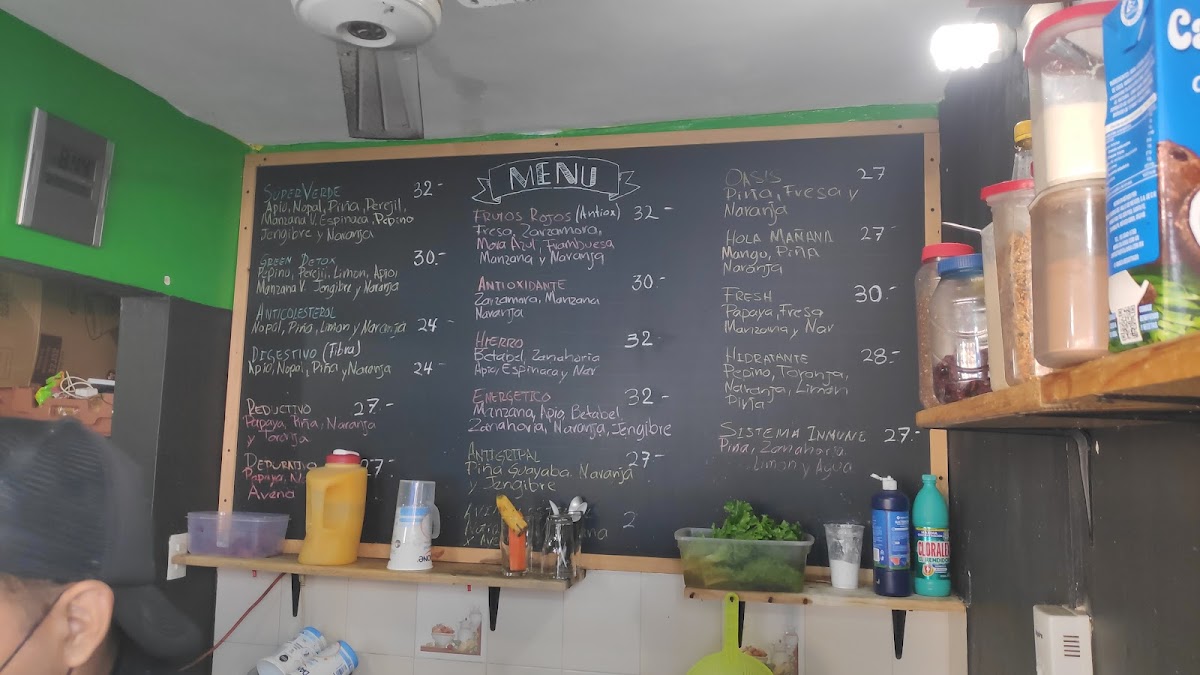 MENU
SUPERVERDE 32-
Apio, Nopal, Piña, Perejil,
Manzana V. Espinaza, Pepino
Jengibre y Naranja
GREEN DETOX 30-
Pepino, Perejil, Limon, Apio,
Manzana V. Jengibre y Naranja
ANTICOLESTEROL
Nopal, Piña, Limon y Naranja 24-
DIGESTIVO (Fibra)
Apio, Nopal, Piña y Naranja 24-
REDUCTIVO 27-
Papaya, Piña, Naranja
y Toronja
DEPURATIVO 27-
Papaya,
Avena
FRUTOS ROJOS (Antiox) 32-
Fresa, Zarzamora,
Mora Azul, Frambuesa
Manzana y Naranja
ANTIOXIDANTE 30-
Zarzamora, Manzana
Naranja
HIERRO 32-
Betabel, Zanahoria
Apio, Espinaca y Nar
ENERGETICO 32-
Manzana, Apio, Betabel
Zanahoria, Naranja, Jengibre
ANTIGRIPAL 27-
Piña Guayaba, Naranja
y Jengibre
OASIS 27
Piña, Fresa y
Naranja
HOLA MAÑANA 27-
Mango, Piña
Naranja
FRESH 30-
Papaya, Fresa
Manzana y Nar
HIDRATANTE 28-
Pepino, Toronja,
Naranja, Limon
Piña
SISTEMA INMUNE 27-
Piña, Zanahoria
Limon y Agua
CLORALEX